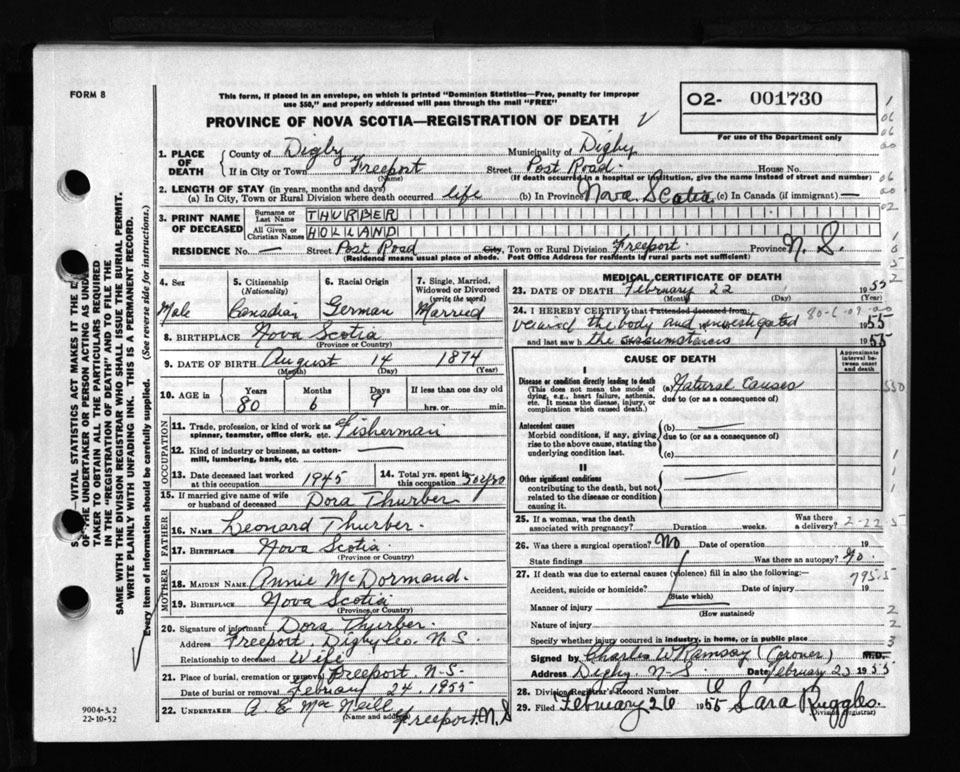 FORM 8
This form, if placed in an envelope, on which is printed "Dominion Statistics—Free, penalty for improper
use $50," and properly addressed will pass through the mail "FREE"
PROVINCE OF NOVA SCOTIA—REGISTRATION OF DEATH
02- 001730
For use of the Department only
1. PLACE OF DEATH { County of Digby Municipality of Digby
If in City or Town Freeport Street Post Road House No.
(Name) (If death occurred in a hospital or institution, give the name instead of street and number)
2. LENGTH OF STAY (in years, months and days)
(a) In City, Town or Rural Division where death occurred life (b) In Province Nova Scotia (c) In Canada (if immigrant) —
3. PRINT NAME OF DECEASED
Surname or Last Name THURBER
All Given or Christian Names HOLLAND
RESIDENCE No. — Street Post Road City, Town or Rural Division Freeport Province N. S.
(Residence means usual place of abode. Post Office Address for residents in rural parts not sufficient)
4. Sex Male
5. Citizenship (Nationality) Canadian
6. Racial Origin German
7. Single, Married, Widowed or Divorced (write the word) Married
8. BIRTHPLACE Nova Scotia
(Province or Country)
9. DATE OF BIRTH August 14 1874
(Month) (Day) (Year)
10. AGE in Years 80 Months 6 Days 9 If less than one day old
hrs. or min.
OCCUPATION
11. Trade, profession, or kind of work as
spinner, teamster, office clerk, etc. Fisherman
12. Kind of industry or business, as cotton-
mill, lumbering, bank, etc. —
13. Date deceased last worked
at this occupation 1945
14. Total yrs. spent in
this occupation 50 yrs
15. If married give name of wife
or husband of deceased Dora Thurber
FATHER
16. NAME Leonard Thurber.
17. BIRTHPLACE Nova Scotia
(Province or Country)
MOTHER
18. MAIDEN NAME Annie McDormand.
19. BIRTHPLACE Nova Scotia
(Province or Country)
20. Signature of informant Dora Thurber.
Address Freeport, Digby Co. N. S.
Relationship to deceased Wife
21. Place of burial, cremation or removal Freeport, N-S-
Date of burial or removal February 24, 1955
22. UNDERTAKER A. E. MacNeill
(Name and address) Freeport, N. S
MEDICAL CERTIFICATE OF DEATH
23. DATE OF DEATH February 22 1955
(Month) (Day) (Year)
24. I HEREBY CERTIFY that I attended deceased from:
viewed the body and investigated 1955
and last saw h the circumstances 1955
CAUSE OF DEATH
Approximate interval between onset and death
I
Disease or condition directly leading to death
(This does not mean the mode of
dying, e.g., heart failure, asthenia,
etc. It means the disease, injury, or
complication which caused death.)
(a) Natural Causes
due to (or as a consequence of)
Antecedent causes
Morbid conditions, if any, giving
rise to the above cause, stating the
underlying condition last.
(b) —
due to (or as a consequence of)
(c) —
II
Other significant conditions
contributing to the death, but not
related to the disease or condition
causing it.
25. If a woman, was the death
associated with pregnancy? Duration weeks. Was there a delivery?
2-22-5
26. Was there a surgical operation? No Date of operation 19
State findings Was there an autopsy? No.
27. If death was due to external causes (violence) fill in also the following:—
795.5
Accident, suicide or homicide? Date of injury 19
(State which)
Manner of injury
(How sustained)
Nature of injury
Specify whether injury occurred in industry, in home, or in public place
Signed by Charles W Ramsay (Coroner) M.D.
Address Digby, N-S. Date February 23 1955
28. Division Registrar's Record Number 6
29. Filed February 26 1955 Sara Ruggles.
(Division Registrar)
TAKER TO OBTAIN ALL THE PARTICULARS REQUIRED
IN THE "REGISTRATION OF DEATH" AND TO FILE THE
SAME WITH THE DIVISION REGISTRAR WHO SHALL ISSUE THE BURIAL PERMIT.
WRITE PLAINLY WITH UNFADING INK. THIS IS A PERMANENT RECORD.
Every item of information should be carefully supplied. (See reverse side for instructions.)
9004-3.2
22-10-52